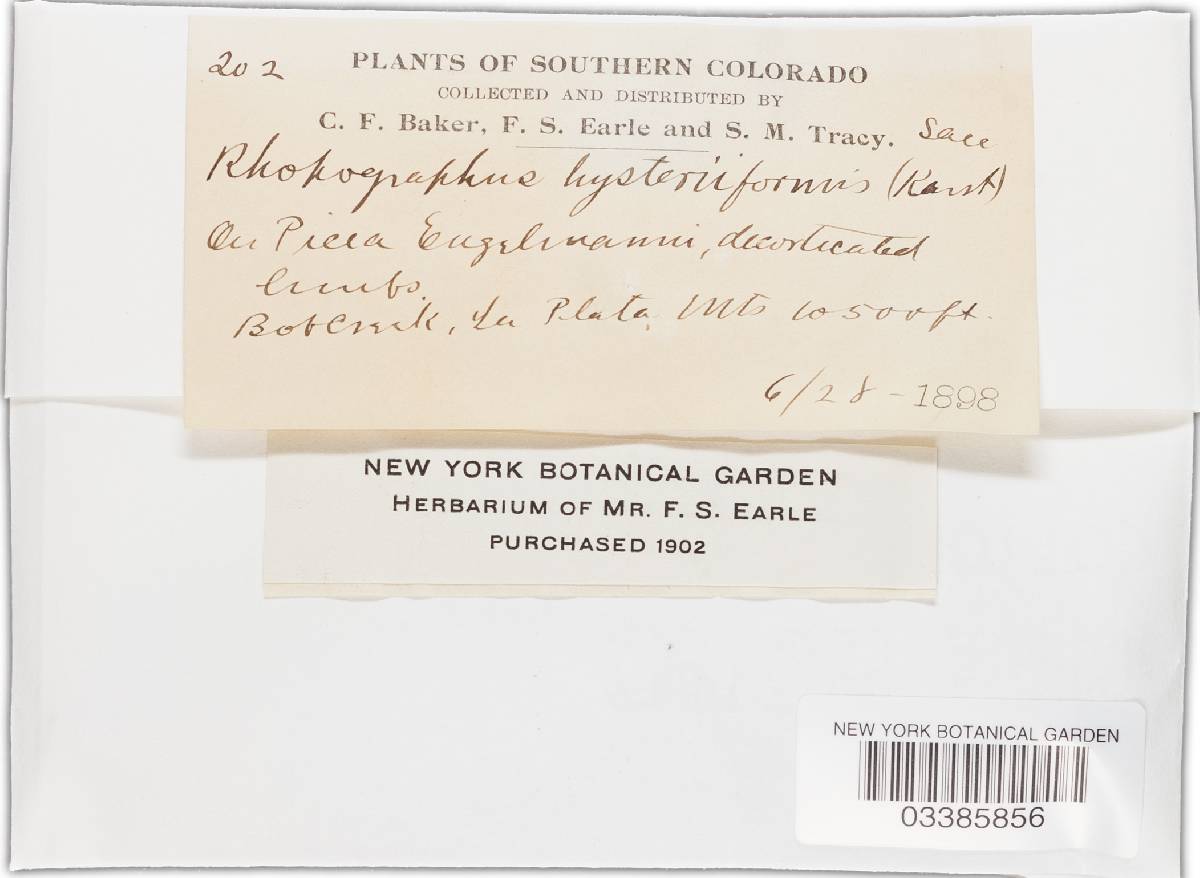 202 PLANTS OF SOUTHERN COLORADO
COLLECTED AND DISTRIBUTED BY
C. F. Baker, F. S. Earle and S. M. Tracy.
Rhopographus hysteriiformis (Karst) Sacc
On Picea Engelmanni, decorticated
limbs.
Bob Creek, La Plata Mts 10500ft.
6/28-1898
NEW YORK BOTANICAL GARDEN
HERBARIUM OF MR. F. S. EARLE
PURCHASED 1902
NEW YORK BOTANICAL GARDEN
03385856